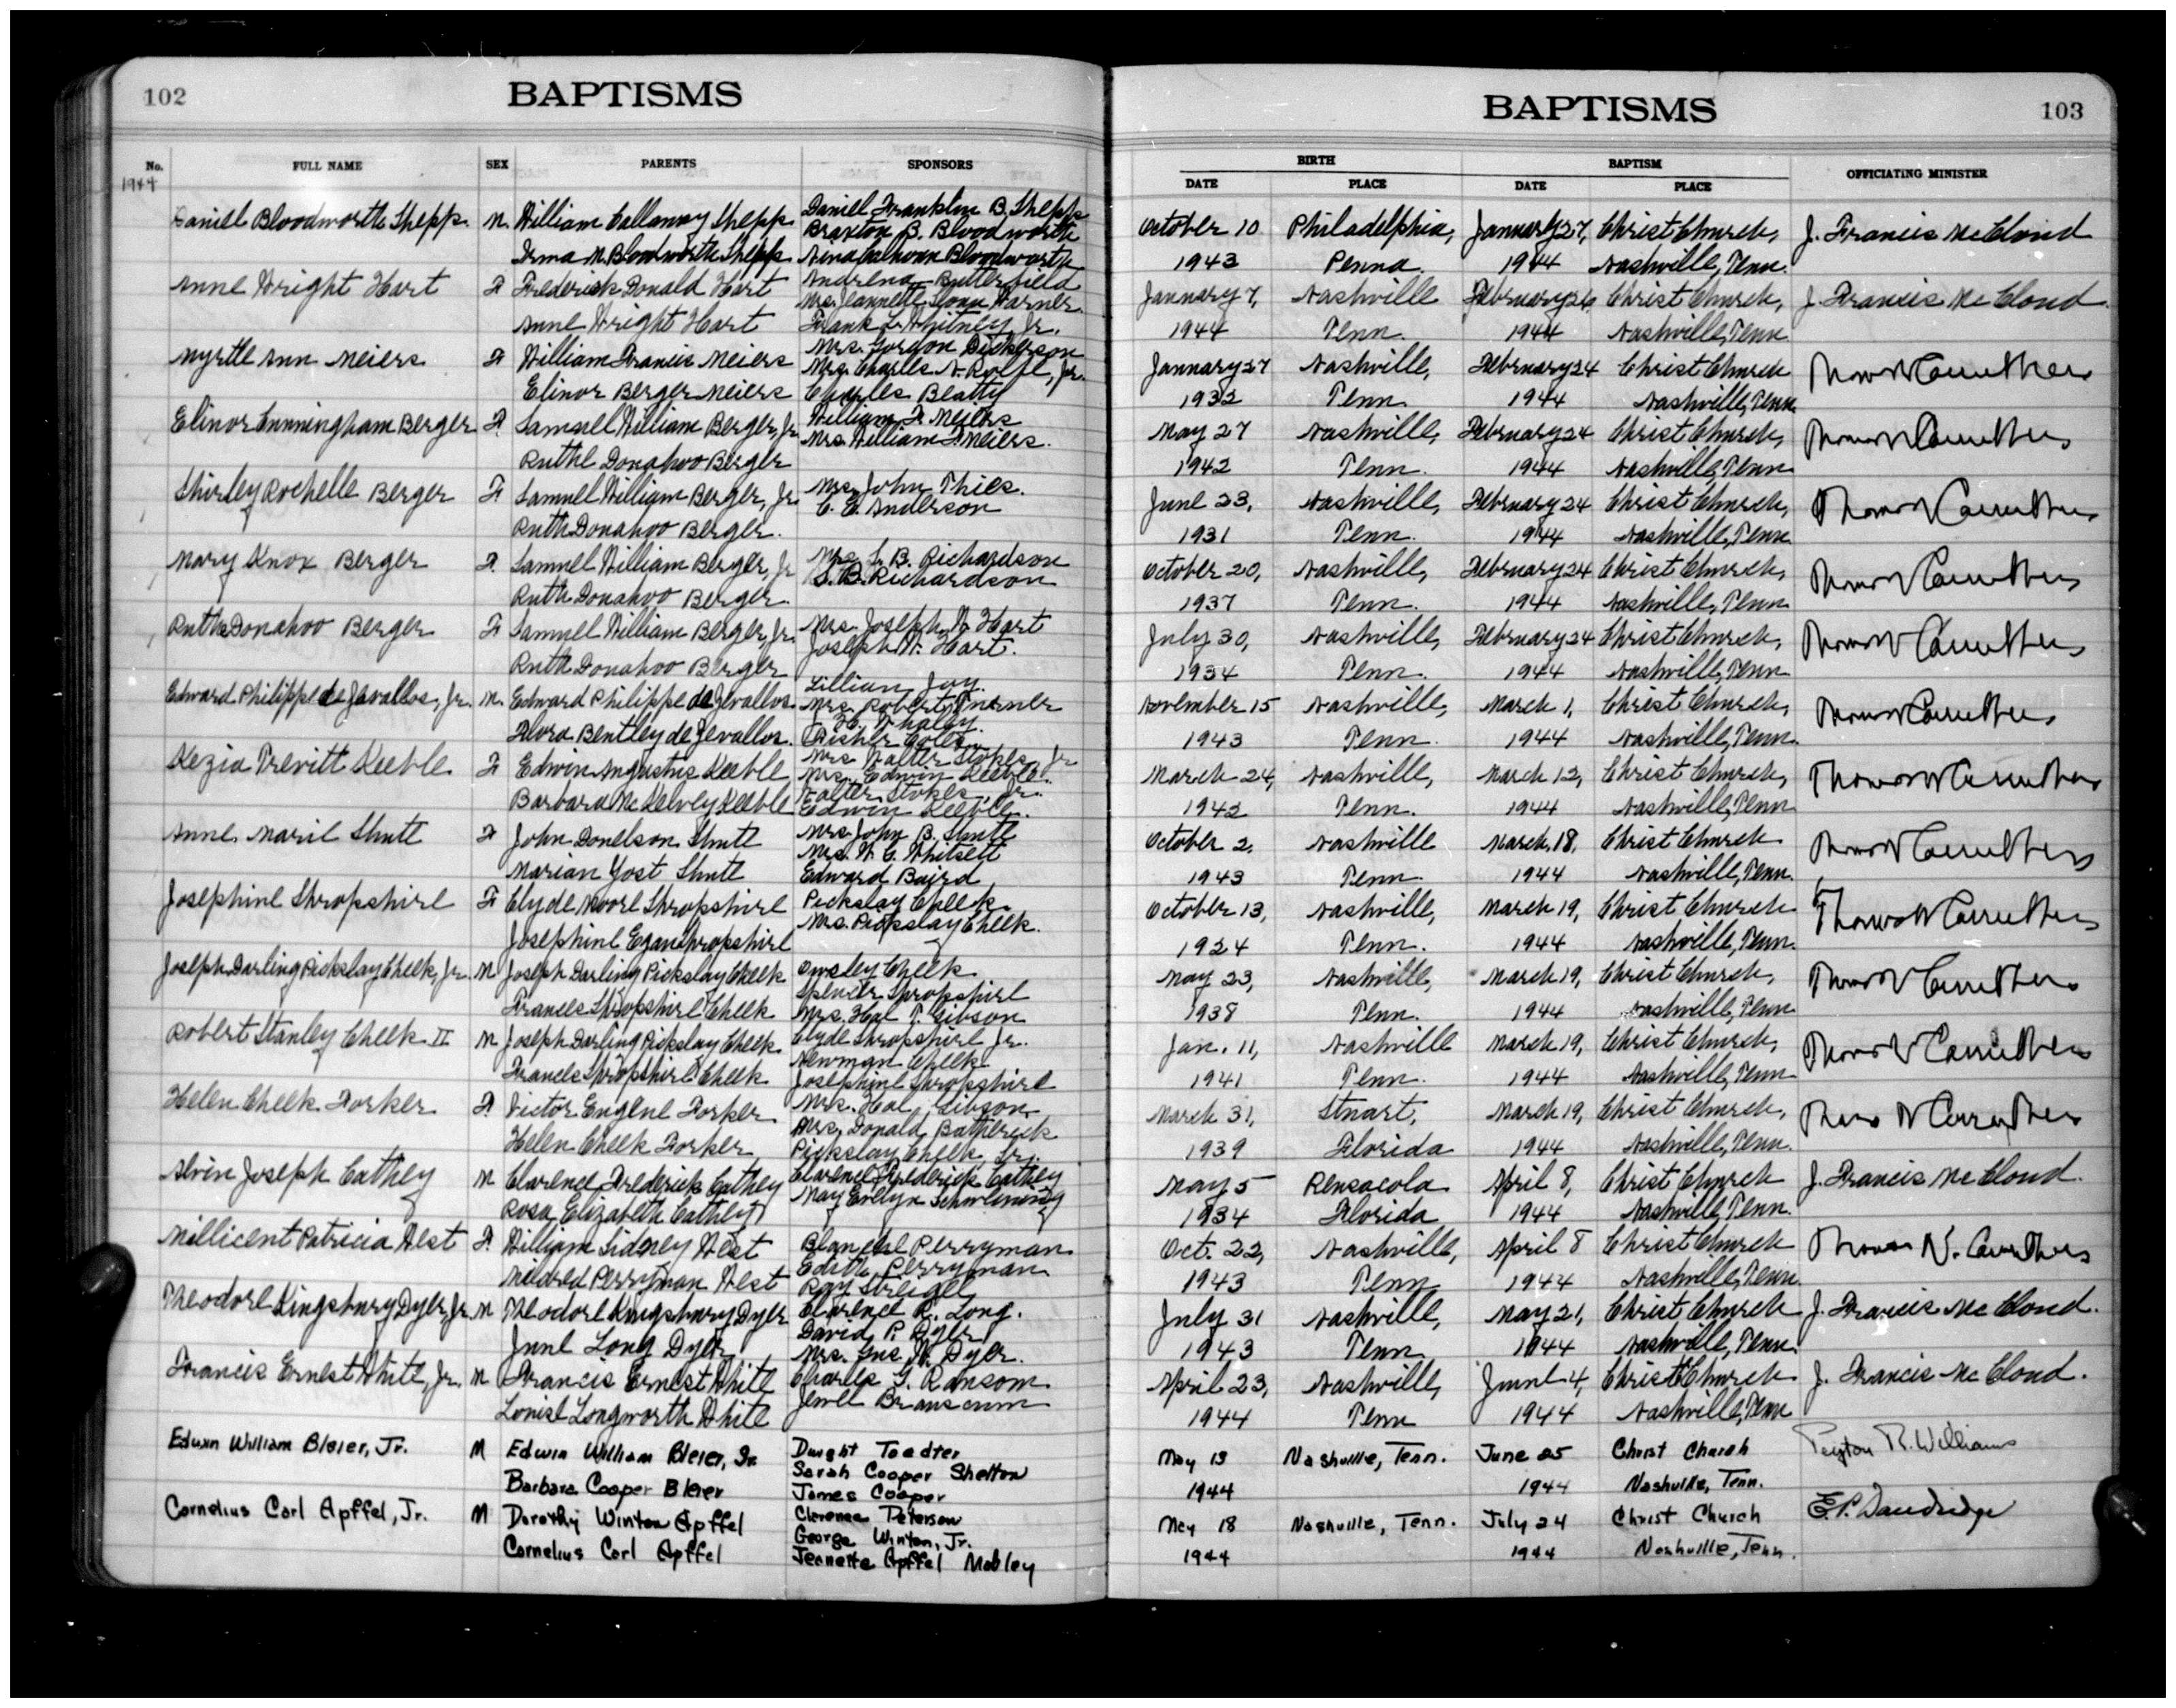 102 BAPTISMS
No. FULL NAME SEX PARENTS SPONSORS
1944
Daniel Bloodworth Shepp. M. William Callaway Shepp Daniel Franklin B. Shepp
Braxton B. Bloodworth
Irma M. Bloodworth Shepp Nina Calhoun Bloodworth
Anne Wright Hart F Frederick Donald Hart Andrena Butterfield
Mrs. Jeannette Sloan Warner.
Anne Wright Hart Frank L. Whitney, Jr.
Myrtle Ann Meiers F William Francis Meiers Mrs. Gordon Dickerson
Mrs. Charles N. Rolfe, Jr.
Elinor Berger Meiers Charles Beatty
Elinor Cunningham Berger F. Samuel William Berger, Jr. William F. Meiers
Mrs. William F. Meiers.
Ruth Donahoo Berger
Shirley Rochelle Berger F. Samuel William Berger, Jr. Mrs. John Thies.
C. E. Anderson
Ruth Donahoo Berger.
Mary Knox Berger F. Samuel William Berger, Jr Mrs. S. B. Richardson
S. B. Richardson
Ruth Donahoo Berger.
Ruth Donahoo Berger F. Samuel William Berger, Jr. Mrs. Joseph W. Hart
Joseph W. Hart.
Ruth Donahoo Berger
Edward Philippe de Zevallos, Jr. M. Edward Philippe de Zevallos. Lillian Jay.
Mrs. Robert Turner
Flora Bentley de Zevallos. J. H. Whaley.
Kezia Trevitt Keeble F Edwin Augustus Keeble Mrs. Walter Stokes, Jr
Mrs. Edwin Keeble.
Barbara McKelvey Keeble Walter Stokes, Jr.
Edwin Keeble.
Anne Marie Shute F John Donelson Shute Mrs. John B. Shute
Mrs. W. C. Whitsett
Marian Yost Shute Edward Baird
Josephine Shropshire F Clyde Moore Shropshire Pickslay Cheek.
Mrs. Pickslay Cheek.
Josephine Egan Shropshire
Joseph Darling Pickslay Cheek, Jr. M Joseph Darling Pickslay Cheek Owsley Cheek
Spencer Shropshire
Frances Shropshire Cheek Mrs. Hal T. Gibson
Robert Stanley Cheek II M Joseph Darling Pickslay Cheek Clyde Shropshire Jr.
Newman Cheek
Frances Shropshire Cheek Josephine Shropshire
Helen Cheek Forker F Victor Eugene Forker Mrs. Hal Gibson
Mrs. Donald
Helen Cheek Forker Pickslay Cheek Sr.
Alvin Joseph Cathey M Clarence Frederick Cathey Clarence Frederick Cathey
May Evelyn
Rosa Elizabeth Cathey
Millicent Patricia West F. William Sidney West Blanche Perryman
Edith Perryman
Mildred Perryman West Ray Streigel
Theodore Kingsbury Dyer, Jr. M Theodore Kingsbury Dyer Clarence R. Long.
David P. Dyer
June Long Dyer Mrs. Gus W. Dyer.
Francis Ernest White, Jr. M Francis Ernest White Charles G. Ransom
Jewell Branscum
Louise Longworth White
Edwin William Bleier, Jr. M Edwin William Bleier, Sr. Dwight Toedter
Sarah Cooper Shelton
Barbara Cooper Bleier James Cooper
Cornelius Carl Apffel, Jr. M Dorothy Winton Apffel Clarence Peterson
George Winton, Jr.
Cornelius Carl Apffel Jeanette Apffel Mobley
BAPTISMS 103
BIRTH BAPTISM OFFICIATING MINISTER
DATE PLACE DATE PLACE
October 10 Philadelphia, January 27, Christ Church, J. Francis McCloud
1943 Penna. 1944 Nashville, Tenn.
January 7, Nashville February 26, Christ Church, J. Francis McCloud.
1944 Tenn. 1944 Nashville, Tenn
January 27 Nashville, February 24 Christ Church Thomas N Carruthers
1932 Tenn. 1944 Nashville, Tenn.
May 27 Nashville, February 24 Christ Church, Thomas N Carruthers
1942 Tenn. 1944 Nashville, Tenn
June 23, Nashville, February 24 Christ Church, Thomas N Carruthers
1931 Tenn. 1944 Nashville, Tenn.
October 20, Nashville, February 24 Christ Church, Thomas N Carruthers
1937 Tenn. 1944 Nashville, Tenn
July 30, Nashville, February 24 Christ Church, Thomas N Carruthers
1934 Tenn. 1944 Nashville, Tenn
November 15 Nashville, March 1, Christ Church, Thomas N Carruthers
1943 Tenn. 1944 Nashville, Tenn.
March 24, Nashville, March 12, Christ Church, Thomas N Carruthers
1942 Tenn. 1944 Nashville, Tenn
October 2, Nashville March 18, Christ Church Thomas N Carruthers
1943 Tenn. 1944 Nashville, Tenn.
October 13, Nashville, March 19, Christ Church Thomas N Carruthers
1924 Tenn. 1944 Nashville, Tenn.
May 23, Nashville, March 19, Christ Church, Thomas N Carruthers
1938 Tenn. 1944 Nashville, Tenn
Jan. 11, Nashville March 19, Christ Church, Thomas N Carruthers
1941 Tenn. 1944 Nashville, Tenn
March 31, Stuart, March 19, Christ Church, Thomas N Carruthers
1939 Florida 1944 Nashville, Tenn.
May 5 Pensacola April 8, Christ Church J. Francis McCloud.
1934 Florida 1944 Nashville, Tenn.
Oct. 22, Nashville, April 8 Christ Church Thomas N. Carruthers
1943 Tenn 1944 Nashville, Tenn
July 31 Nashville, May 21, Christ Church J. Francis McCloud.
1943 Tenn 1944 Nashville, Tenn.
April 23, Nashville, June 4, Christ Church J. Francis McCloud.
1944 Tenn 1944 Nashville, Tenn
May 13 Nashville, Tenn. June 25 Christ Church Peyton R. Williams
1944 1944 Nashville, Tenn.
May 18 Nashville, Tenn. July 24 Christ Church E. P. Dandridge
1944 1944 Nashville, Tenn.